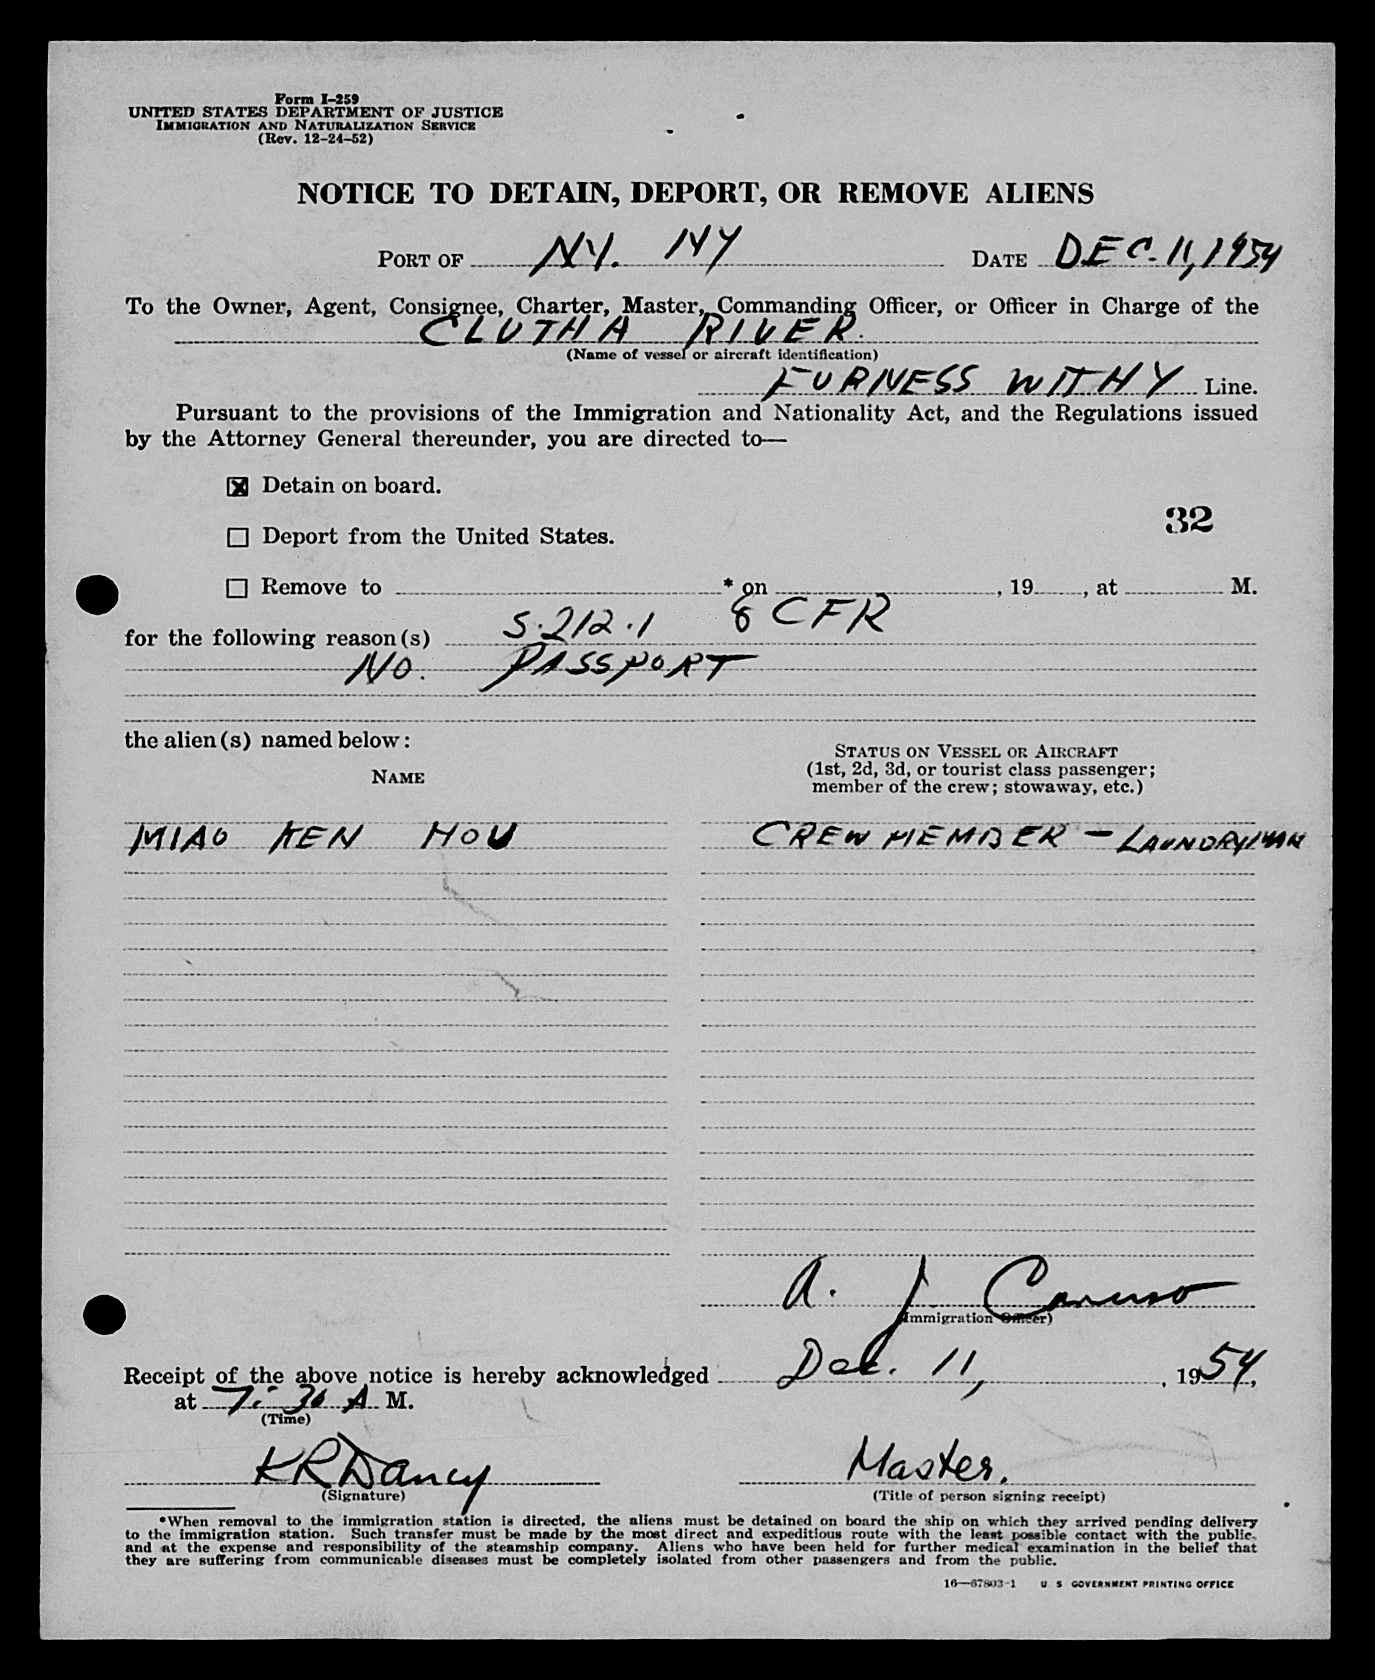 Form I-259
UNITED STATES DEPARTMENT OF JUSTICE
IMMIGRATION AND NATURALIZATION SERVICE
(Rev. 12-24-52)
NOTICE TO DETAIN, DEPORT, OR REMOVE ALIENS
PORT OF NY. NY DATE DEC. 11, 1954
To the Owner, Agent, Consignee, Charter, Master, Commanding Officer, or Officer in Charge of the
CLUTHA RIVER.
(Name of vessel or aircraft identification)
FURNESS WITHY Line.
Pursuant to the provisions of the Immigration and Nationality Act, and the Regulations issued
by the Attorney General thereunder, you are directed to—
☒ Detain on board.
32
☐ Deport from the United States.
☐ Remove to * on , 19 , at M.
for the following reason(s) S. 212.1 8 CFR
NO. PASSPORT
the alien(s) named below:
STATUS ON VESSEL OR AIRCRAFT
(1st, 2d, 3d, or tourist class passenger;
member of the crew; stowaway, etc.)
NAME
MIAO KEN HOU CREW MEMBER - LAUNDRYMAN
A. J Caruso
(Immigration Officer)
Receipt of the above notice is hereby acknowledged Dec. 11, , 1954,
at 7:30 A M.
(Time)
KRDancy Master.
(Signature) (Title of person signing receipt)
*When removal to the immigration station is directed, the aliens must be detained on board the ship on which they arrived pending delivery
to the immigration station. Such transfer must be made by the most direct and expeditious route with the least possible contact with the public,
and at the expense and responsibility of the steamship company. Aliens who have been held for further medical examination in the belief that
they are suffering from communicable diseases must be completely isolated from other passengers and from the public.
16—67803-1 U S GOVERNMENT PRINTING OFFICE